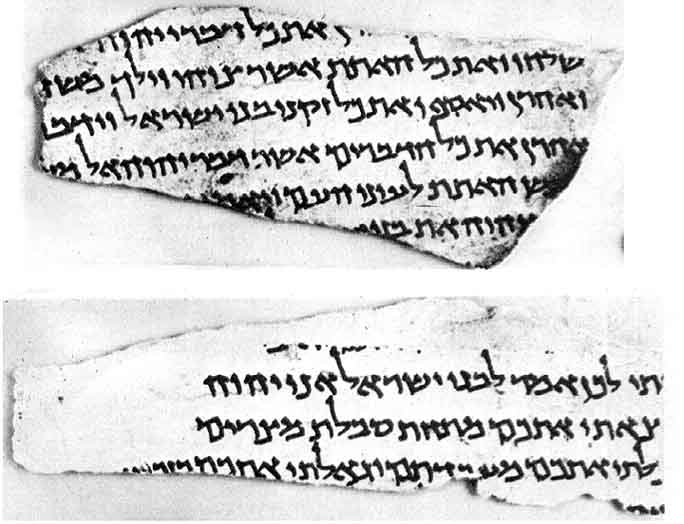 את כל דברי יהוה
שלחו ואת כל האתת אשר צוהו וילך משה
ואהרן ויאספו את כל זקני בני ישראל וידבר
אהרן את כל הדברים אשר דבר יהוה אל מ
ש האתת לעיני העם ויאמן
יהוה את בני
תי לכן אמר לבני ישראל אני יהוה
צאתי אתכם מתחת סבלת מצרים
לתי אתכם מעבדתם וגאלתי אתכם